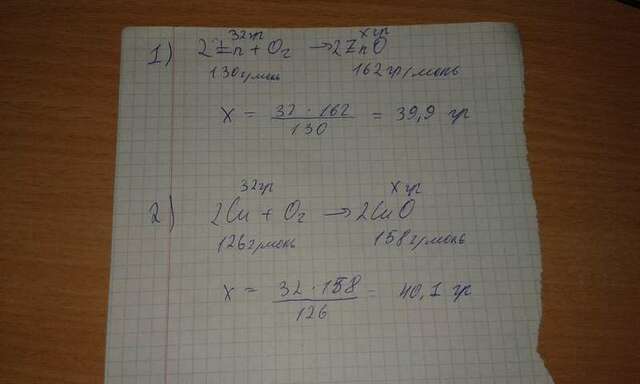 1)
32гр   x гр
2Zn + O₂ → 2ZnO
130г/моль   162гр/моль
x = 32 · 162 / 130 = 39,9 гр
2)
32гр   x гр
2Cu + O₂ → 2CuO
126г/моль   158г/моль
x = 32 · 158 / 126 = 40,1 гр